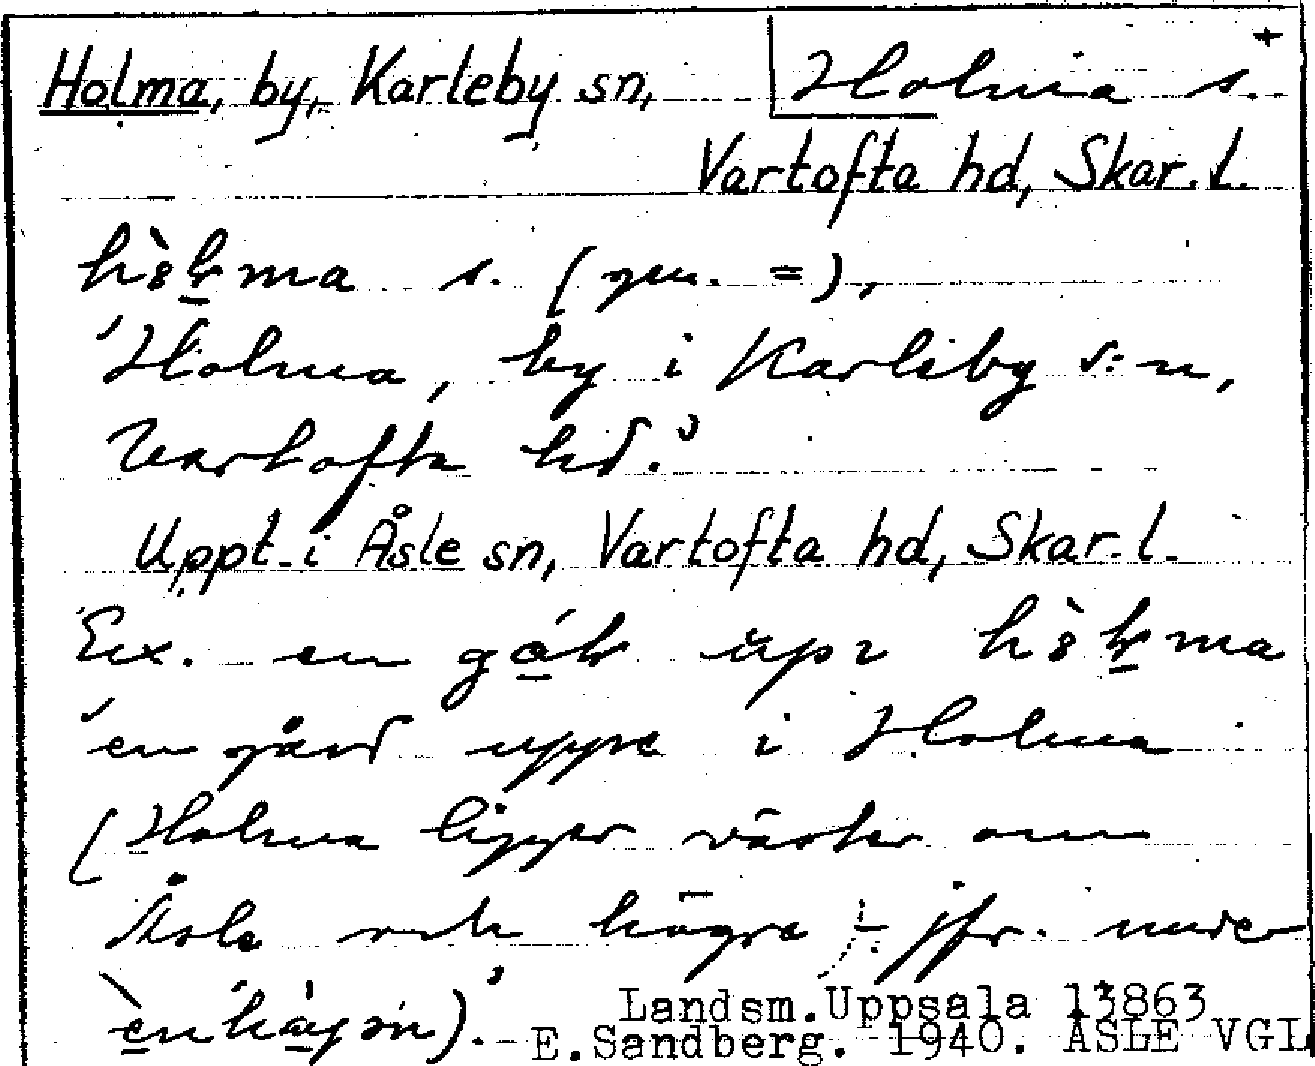 Holma, by, Karleby sn, Holma s.
Vartofta hd, Skar. l.
s. (gen. =),
'Holma, by i Karleby s:n,
Vartofta hd.'
Uppt. i Åsle sn, Vartofta hd, Skar. l.
Ex. en
'en gård uppe i Holma
(Holma ligger väster om
Åsle och högre; - jfr. under
Landsm. Uppsala 13863
E. Sandberg. 1940. ÅSLE VGL